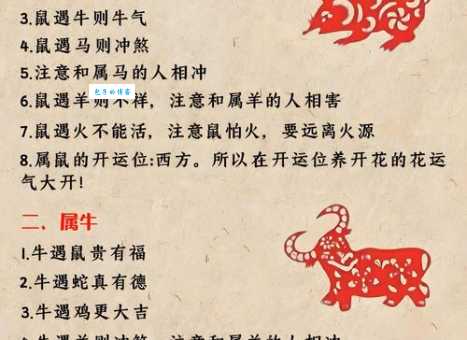 3.鼠遇牛则牛气
4.鼠遇马则冲煞
5.注意和属马的人相冲
6.鼠遇羊则不祥，注意和属羊的人相害
7.鼠遇火不能活，注意鼠怕火，要远离火源
8.属鼠的开运位:西方。所以在开运位养开花的花运
气大开!
二、属牛
1.牛遇鼠贵有福
2.牛遇蛇真有德
3.牛遇鸡更大吉
4.牛遇羊则冲煞，注意和属羊的人相冲